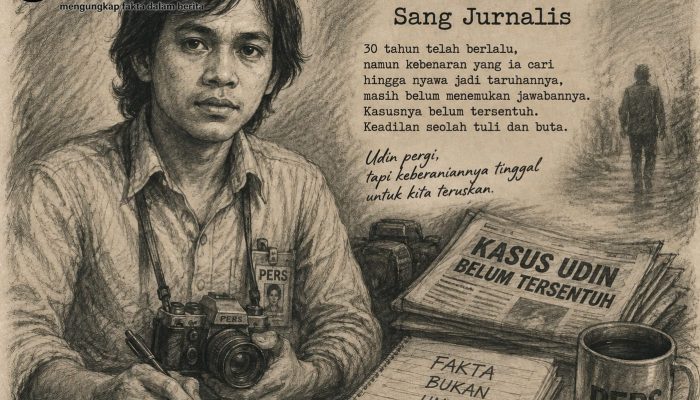 mengungkap fakta dalam berita
Sang Jurnalis
30 tahun telah berlalu,
namun kebenaran yang ia cari
hingga nyawa jadi taruhannya,
masih belum menemukan jawabannya.
Kasusnya belum tersentuh.
Keadilan seolah tuli dan buta.
Udin pergi,
tapi keberaniannya tinggal
untuk kita teruskan.
PERS
PERS
KASUS UDIN
BELUM TERSENTUH
FAKTA
BUKAN
PERS